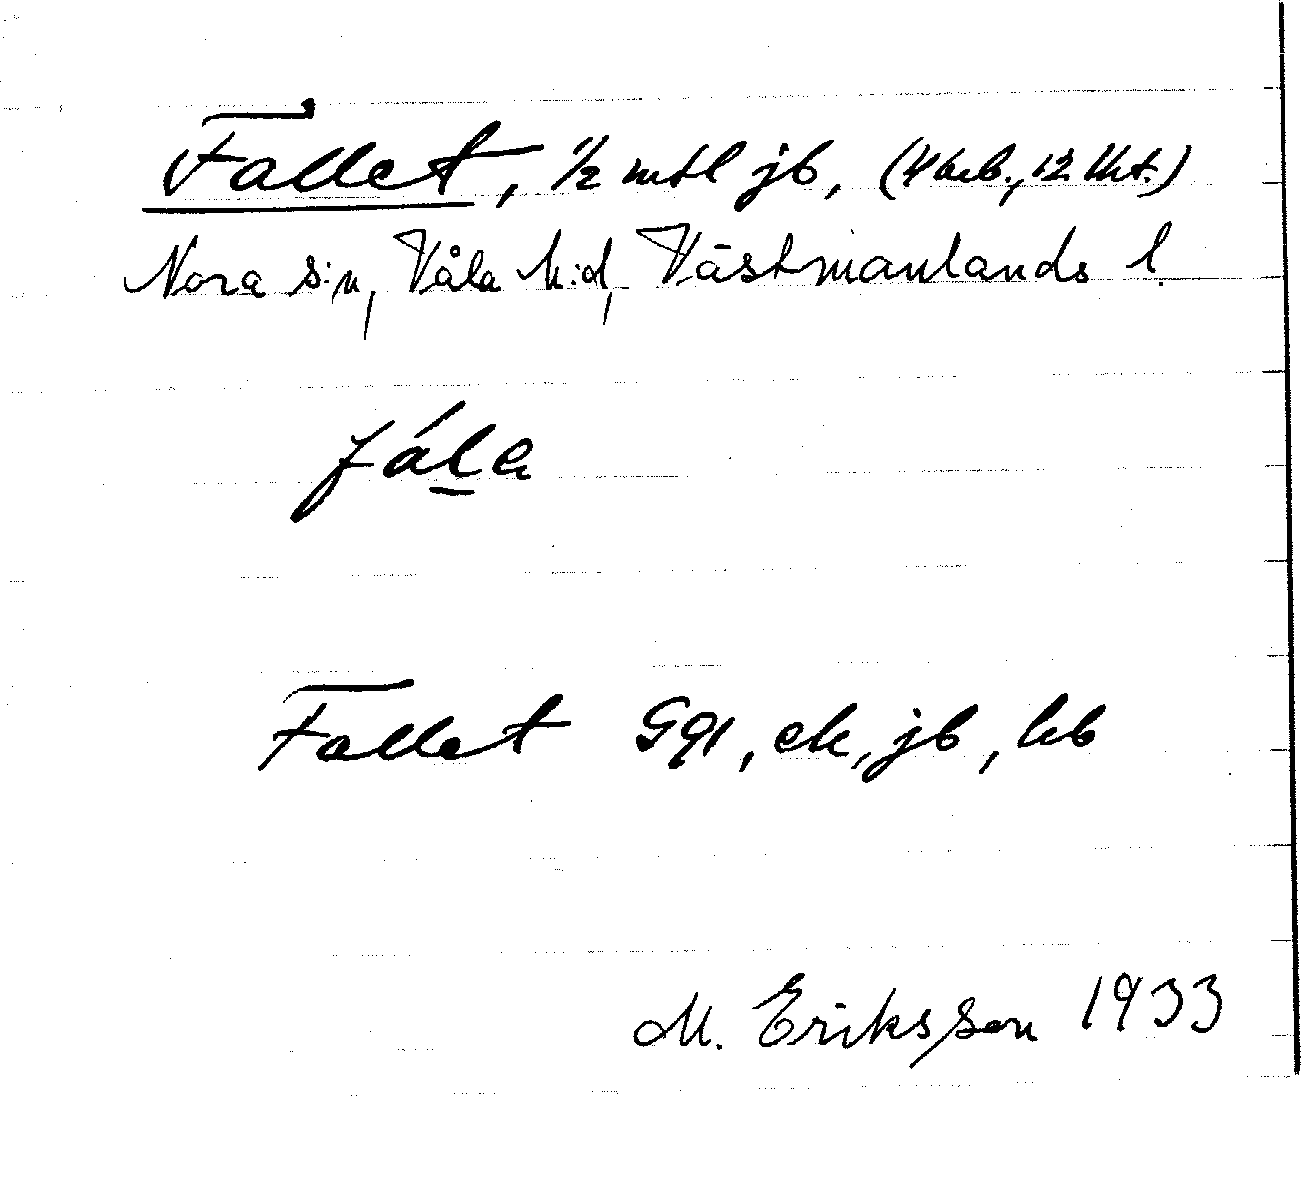 Fallet, 1/2 mtl jb, (4 brb., 12 lht.)
Nora s:n, Våla h:d, Västmanlands l.
fála
Fallet GQl, ek, jb, kb
M. Eriksson 1933